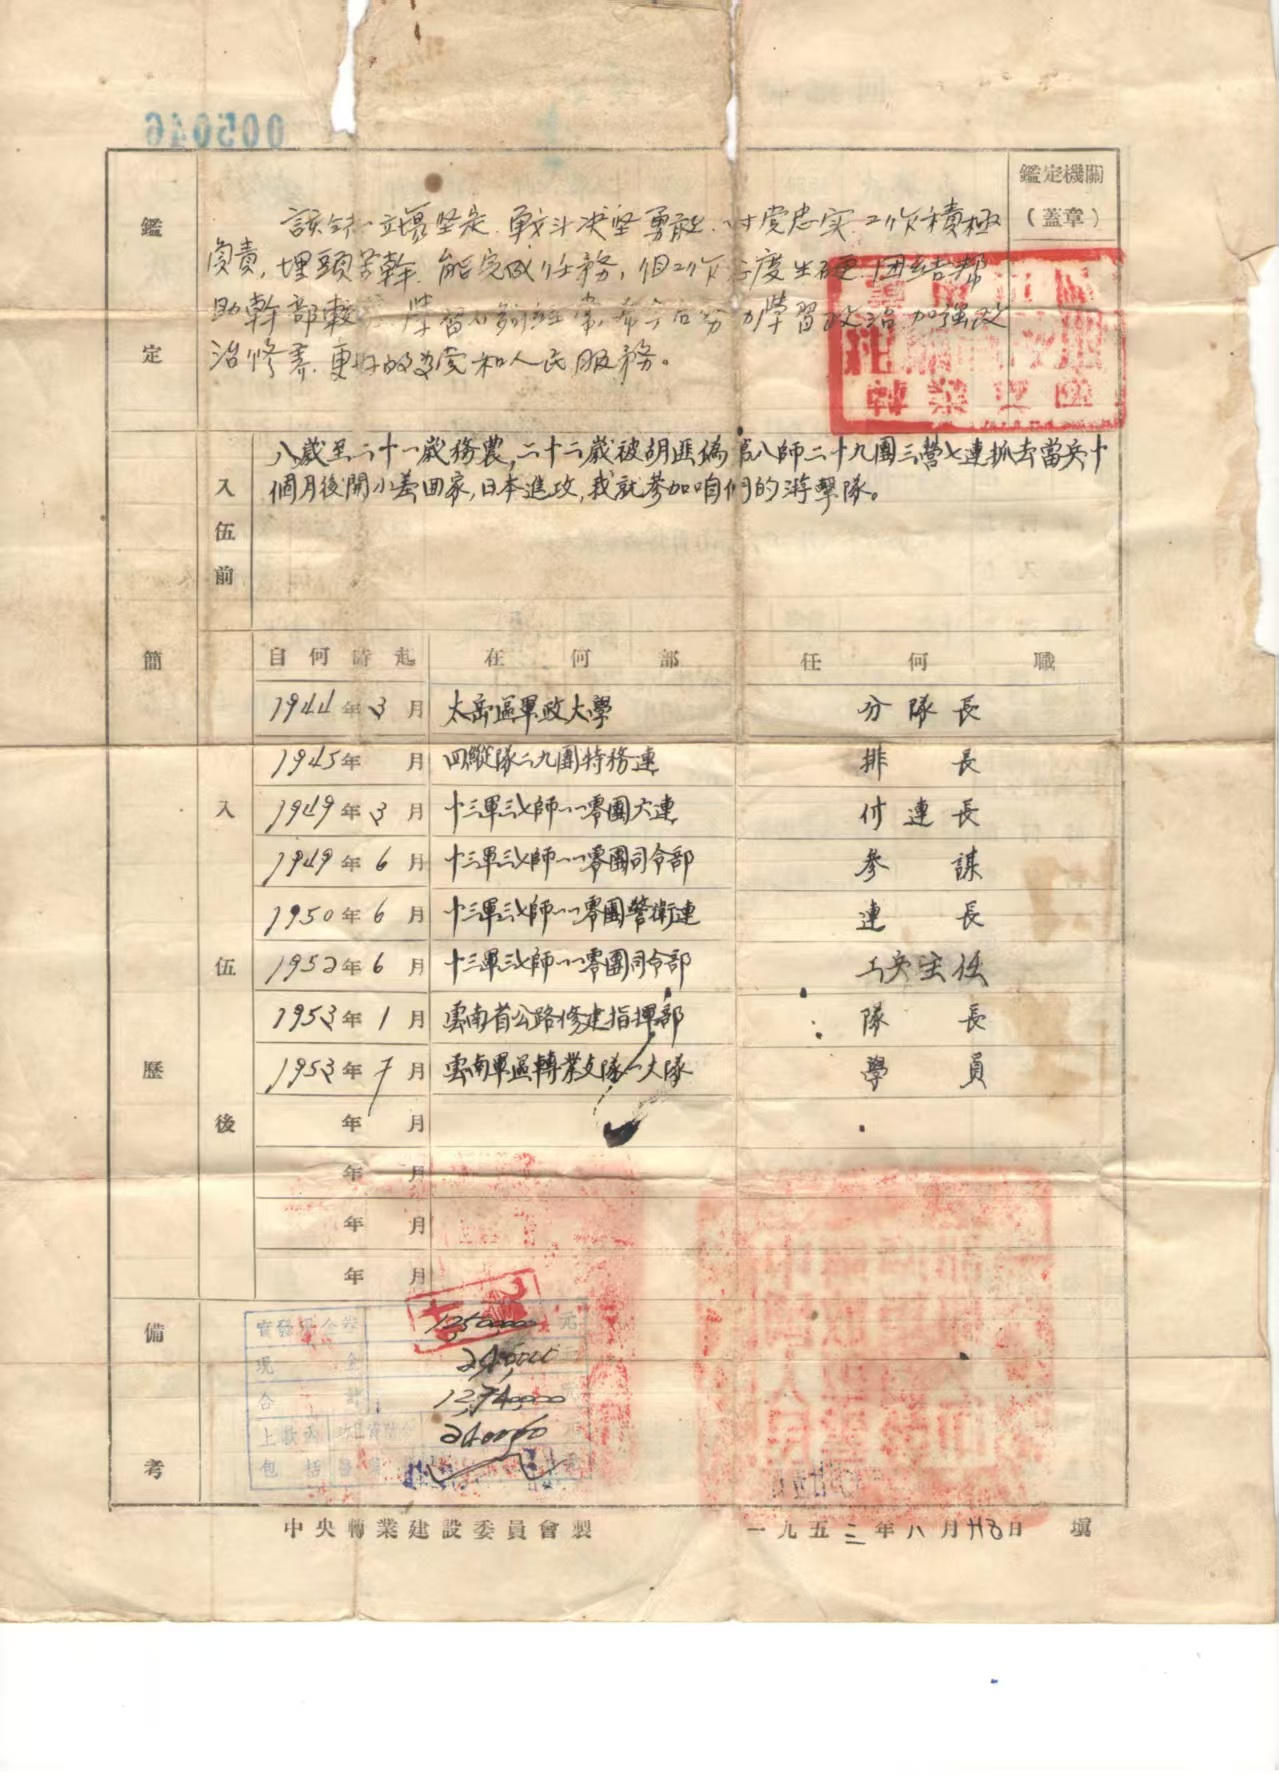 005046
鑑定機關
（蓋章）
鑑定
該立場坚定．戰斗决坚勇敢．对党忠实．工作積極
負責，埋頭苦幹．能完成任務，但工作态度生硬．团结帮
助幹部較 學習不够經常．希今后努力學習政治．加强政
治修养．更好的为党和人民服務。
簡歷
入伍前
八歲至二十一歲務農，二十二歲被胡匪偽 八師二十九團三營七連抓去當兵十
個月後開小差回家，日本進攻，我就參加咱們的游擊隊。
入伍後
自何時起 在何部 任何職
1944年3月 太岳區軍政大學 分隊長
1945年 月 四縱隊二九團特務連 排長
1949年3月 十三軍三七師一一零團六連 付連長
1949年6月 十三軍三七師一一零團司令部 參謀
1950年6月 十三軍三七師一一零團警衛連 連長
1952年6月 十三軍三七師一一零團司令部 工兵主任
1953年1月 雲南省公路修建指揮部 隊長
1953年7月 雲南軍區轉業支隊一大隊 學員
年 月
年 月
年 月
年 月
備考
實發 金 元
現金
合計
上款
包括
中央轉業建設委員會製
一九五三年八月 日 填